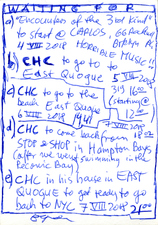 WAITING FOR
a) "Encounters of the 3rd kind"
to start @ CARLOS, 66
4 VIII 2018 HORRIBLE MUSIC!!
b) CHC to go to
East Quogue 5 VIII 2018
c) CHC to go to the
beach East Quogue
6 VIII 2018 1941
d) CHC to come back from
STOP & SHOP in Hampton Bays
(after we went swimming in the
Peconic Bay)
e) CHC in his house in EAST
QUOGUE to get ready to go
back to NYC 7 VIII 2018